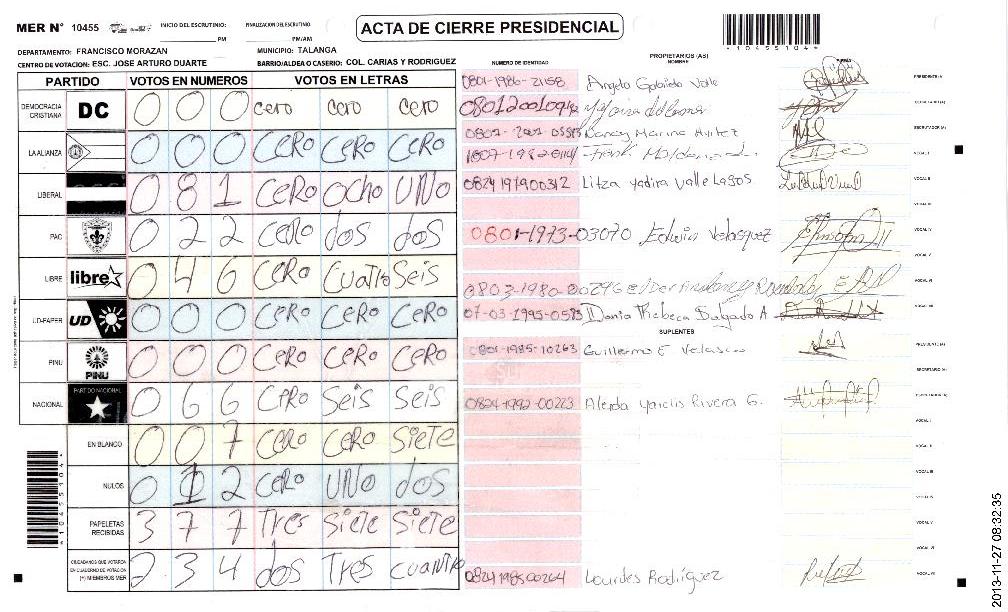 MER N° 10455 INICIO DEL ESCRUTINIO: PM FINALIZACION DEL ESCRUTINIO: PM/AM ACTA DE CIERRE PRESIDENCIAL
10455104
DEPARTAMENTO: FRANCISCO MORAZAN MUNICIPIO: TALANGA
CENTRO DE VOTACION: ESC. JOSE ARTURO DUARTE BARRIO/ALDEA O CASERIO: COL. CARIAS Y RODRIGUEZ
NÚMERO DE IDENTIDAD PROPIETARIOS (AS) NOMBRE FIRMA
PARTIDO VOTOS EN NUMEROS VOTOS EN LETRAS
DEMOCRACIA CRISTIANA DC 0 0 0 cero cero cero
LA ALIANZA 0 0 0 CERO CERO CERO
LIBERAL 0 8 1 CERO OCHO UNO
PAC 0 2 2 CERO dos dos
LIBRE libre 0 4 6 CERO Cuatro Seis
UD-FAPER UD 0 0 0 CERO CERO CERO
PINU PINU 0 0 0 CERO CERO CERO
NACIONAL PARTIDO NACIONAL 0 6 6 CERO Seis Seis
EN BLANCO 0 0 7 CERO CERO SIETE
NULOS 0 1 2 CERO UNO dos
PAPELETAS RECIBIDAS 3 7 7 Tres Siete Siete
CIUDADANOS QUE VOTARON EN CUADERNO DE VOTACION (+) MIEMBROS MER 2 3 4 dos Tres cuantro
0801-1986-2158 Angela Gabriela Valle PRESIDENTE (A)
SECRETARIO (A)
Nancy Marina ESCRUTADOR (A)
Frank VOCAL I
0824197900312 Litza Yadira Valle Lagos VOCAL II
VOCAL III
0801-1973-03070 Edwin Velasquez VOCAL IV
VOCAL V
0803-1980-00296 VOCAL VI
07-03-1995-0583 Dania Rebeca Salgado A. VOCAL VII
SUPLENTES
0801-1985-10263 Guillermo E Velasco PRESIDENTE (A)
SECRETARIO (A)
0824-1992-00223 Alerda Yarclis Rivera G. ESCRUTADOR (A)
VOCAL I
VOCAL II
VOCAL III
VOCAL IV
VOCAL V
VOCAL VI
0824198500264 Lourdes Rodriguez VOCAL VII
2013-11-27 08:32:35